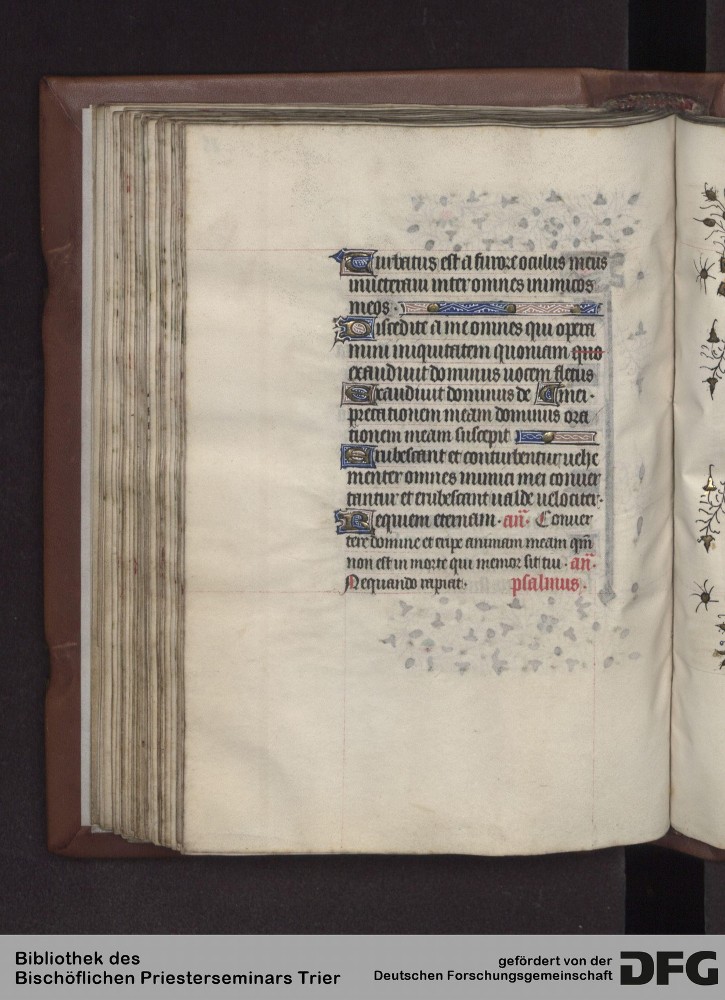 Turbatus est a furore oculus meus
inueteraui inter omnes inimicos
meos.
Discedite a me omnes qui opera
mini iniquitatem quoniam quo
exaudiuit dominus uocem fletus
Exaudiuit dominus de mei.
precationem meam dominus ora
tionem meam suscepit
Erubescant et conturbentur uehe
menter omnes inimici mei conuer
tantur et erubescant ualde uelociter.
Requiem eternam. añ. Conuer
tere domine et eripe animam meam qm̃
non est in morte qui memor sit tui. añ.
Nequando rapiat. psalmus.
Bibliothek des
Bischöflichen Priesterseminars Trier
gefördert von der
Deutschen Forschungsgemeinschaft
DFG